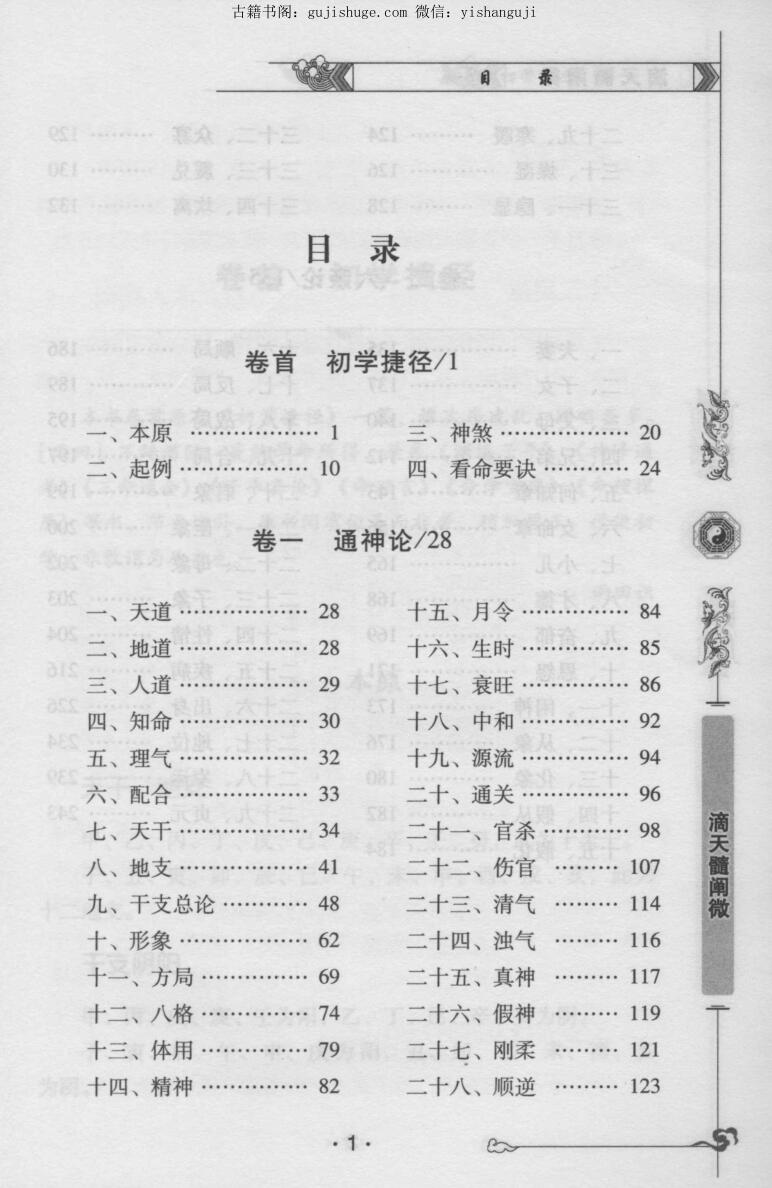 古籍书阁：gujishuge.com 微信：yishanguji
目 录
目 录
卷首 初学捷径/1
一、本原 ………………… 1
二、起例 ………………… 10
三、神煞 ………………… 20
四、看命要诀 …………… 24
卷一 通神论/28
一、天道 ………………… 28
二、地道 ………………… 28
三、人道 ………………… 29
四、知命 ………………… 30
五、理气 ………………… 32
六、配合 ………………… 33
七、天干 ………………… 34
八、地支 ………………… 41
九、干支总论 …………… 48
十、形象 ………………… 62
十一、方局 ……………… 69
十二、八格 ……………… 74
十三、体用 ……………… 79
十四、精神 ……………… 82
十五、月令 ……………… 84
十六、生时 ……………… 85
十七、衰旺 ……………… 86
十八、中和 ……………… 92
十九、源流 ……………… 94
二十、通关 ……………… 96
二十一、官杀 …………… 98
二十二、伤官 ………… 107
二十三、清气 ………… 114
二十四、浊气 ………… 116
二十五、真神 ………… 117
二十六、假神 ………… 119
二十七、刚柔 ………… 121
二十八、顺逆 ………… 123
滴天髓阐微
·1·